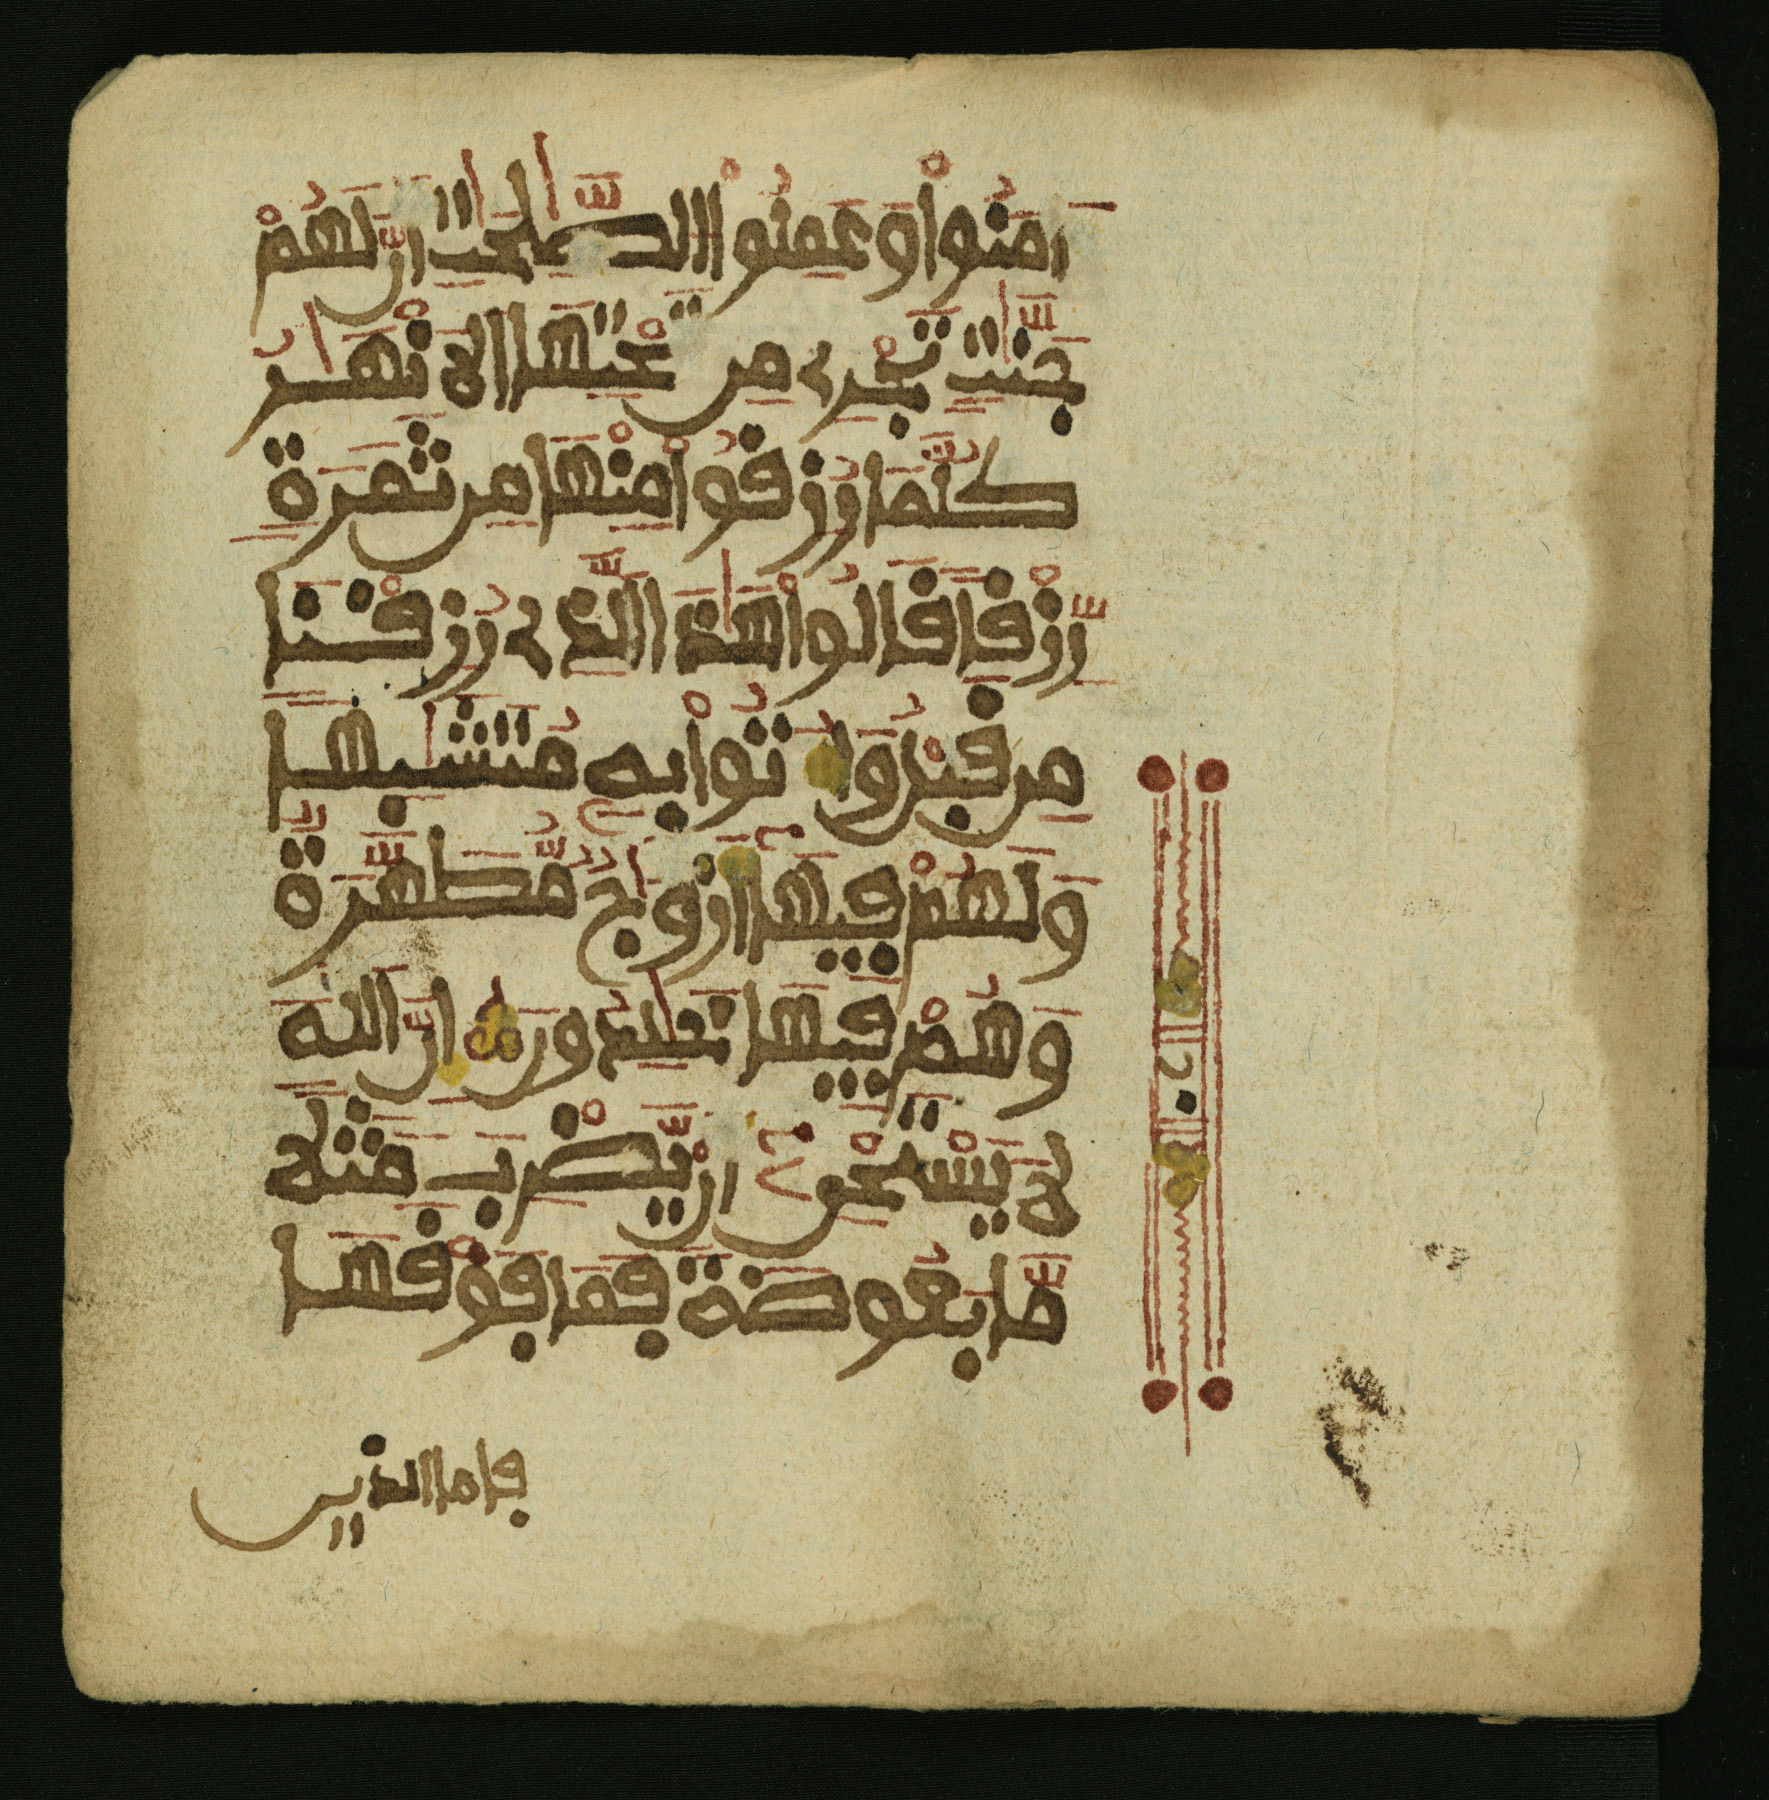 ءَامَنُواْ وَعَمِلُواْ الصَّٰلِحَٰتِ أَنَّ لَهُمْ
جَنَّٰتٍ تَجْرِے مِن تَحْتِهَا الَانْهَٰرُ
كُلَّمَا رُزِقُواْ مِنْهَا مِن ثَمَرَةٍ
رِّزْقاً قَالُواْ هَٰذَا الَّذِے رُزِقْنَا
مِن قَبْلُ وَأُتُواْ بِهِ مُتَشَٰبِهاً
وَلَهُمْ فِيهَا أَزْوَٰجٌ مُّطَهَّرَةٌ
وَهُمْ فِيهَا خَٰلِدُونَ إِنَّ اللَّهَ
لَا يَسْتَحْيِ أَنْ يَّضْرِبَ مَثَلاً
مَّا بَعُوضَةً فَمَا فَوْقَهَا
فاما الذين